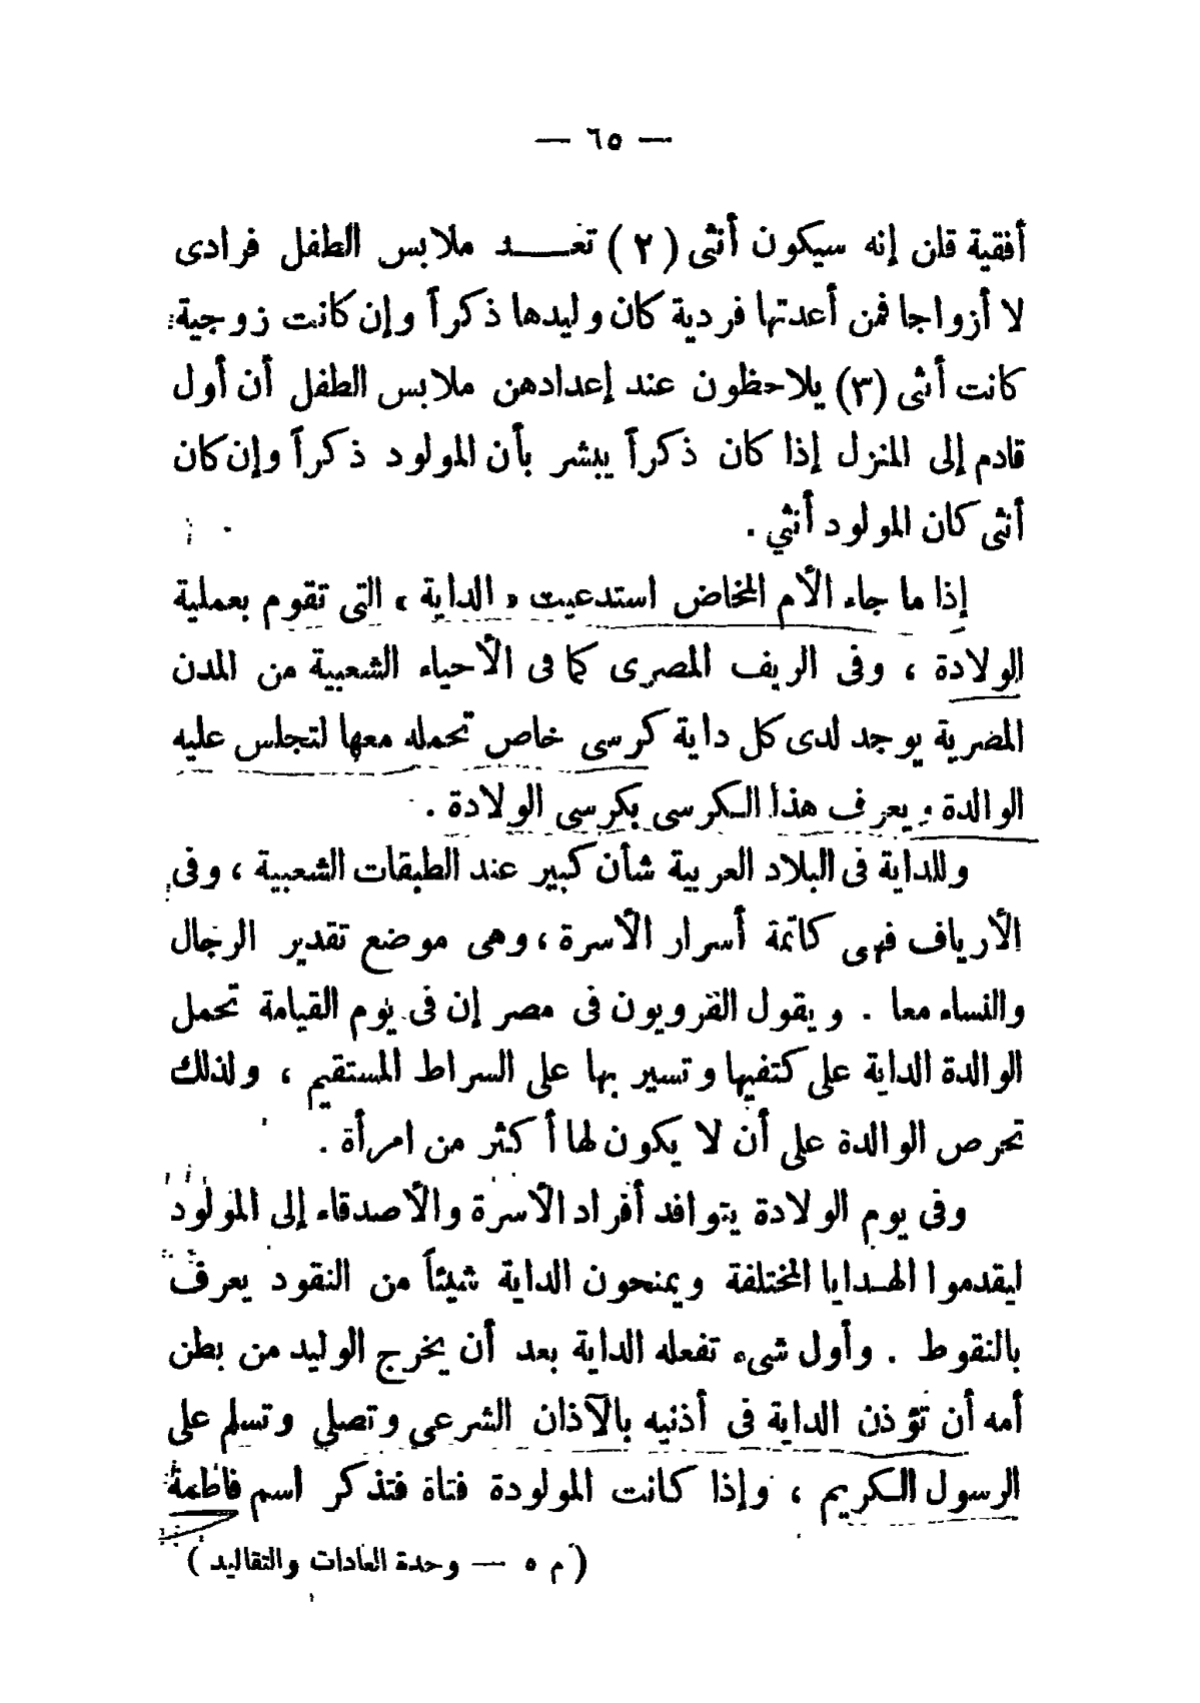 — ٦٥ —
أفقية قلن إنه سيكون أنثى (٢) تعـــد ملابس الطفل فرادى
لا أزواجا فمن أعدتها فردية كان وليدها ذكراً وإن كانت زوجية
كانت أنثى (٣) يلاحظون عند إعدادهن ملابس الطفل أن أول
قادم إلى المنزل إذا كان ذكراً يبشر بأن المولود ذكراً وإن كان
أنثى كان المولود أنثي .
إذا ما جاء الأم المخاض استدعيت « الداية » التى تقوم بعملية
الولادة ، وفى الريف المصرى كما فى الأحياء الشعبية من المدن
المصرية يوجد لدى كل داية كرسى خاص تحمله معها لتجلس عليه
الوالدة ويعرف هذا الكرسى بكرسى الولادة .
وللداية فى البلاد العربية شأن كبير عند الطبقات الشعبية ، وفى
الأرياف فهى كاتمة أسرار الأسرة ، وهى موضع تقدير الرجال
والنساء معا . ويقول القرويون فى مصر إن فى يوم القيامة تحمل
الوالدة الداية على كتفيها وتسير بها على السراط المستقيم ، ولذلك
تحرص الوالدة على أن لا يكون لها أكثر من امرأة .
وفى يوم الولادة يتوافد أفراد الأسرة والأصدقاء إلى المولود
ليقدموا الهـدايا المختلفة ويمنحون الداية شيئاً من النقود يعرف
بالنقوط . وأول شىء تفعله الداية بعد أن يخرج الوليد من بطن
أمه أن تؤذن الداية فى أذنيه بالآذان الشرعى وتصلي وتسلم على
الرسول الكريم ، وإذا كانت المولودة فتاة فتذكر اسم فاطمة
( م ٥ — وحدة العادات والتقاليد )